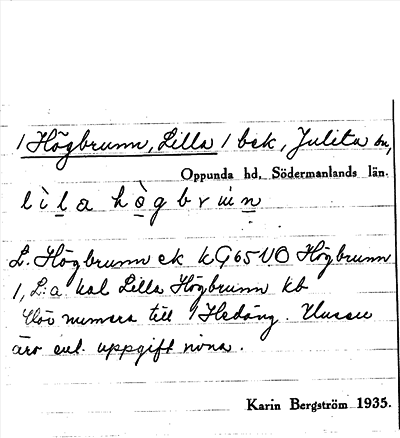 1 Högbrunn, Lilla / bek, Julita sn,
Oppunda hd, Södermanlands län.
lìla hògbrun
L. Högbrunn ek kG65NO Högbrunn
1, L:a kal Lilla Högbrunn kb
Hör numera till Hedäng. Husen
äro enl. uppgift rivna.
Karin Bergström 1935.